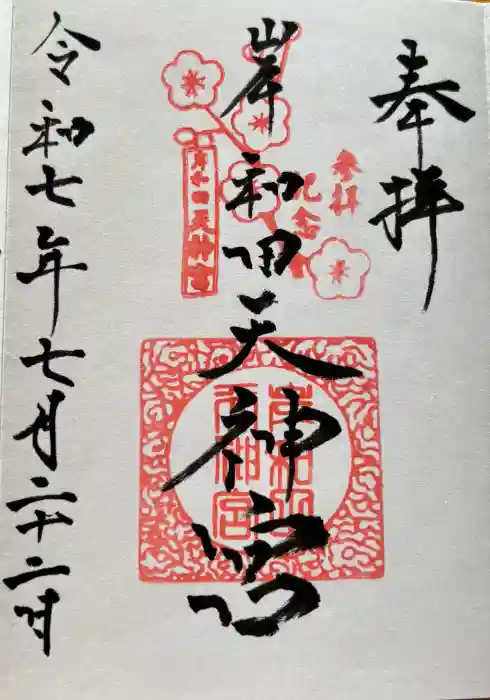 奉拝
参拝
記念
岸和田天神宮
岸和田天神宮
令和七年七月二十二日